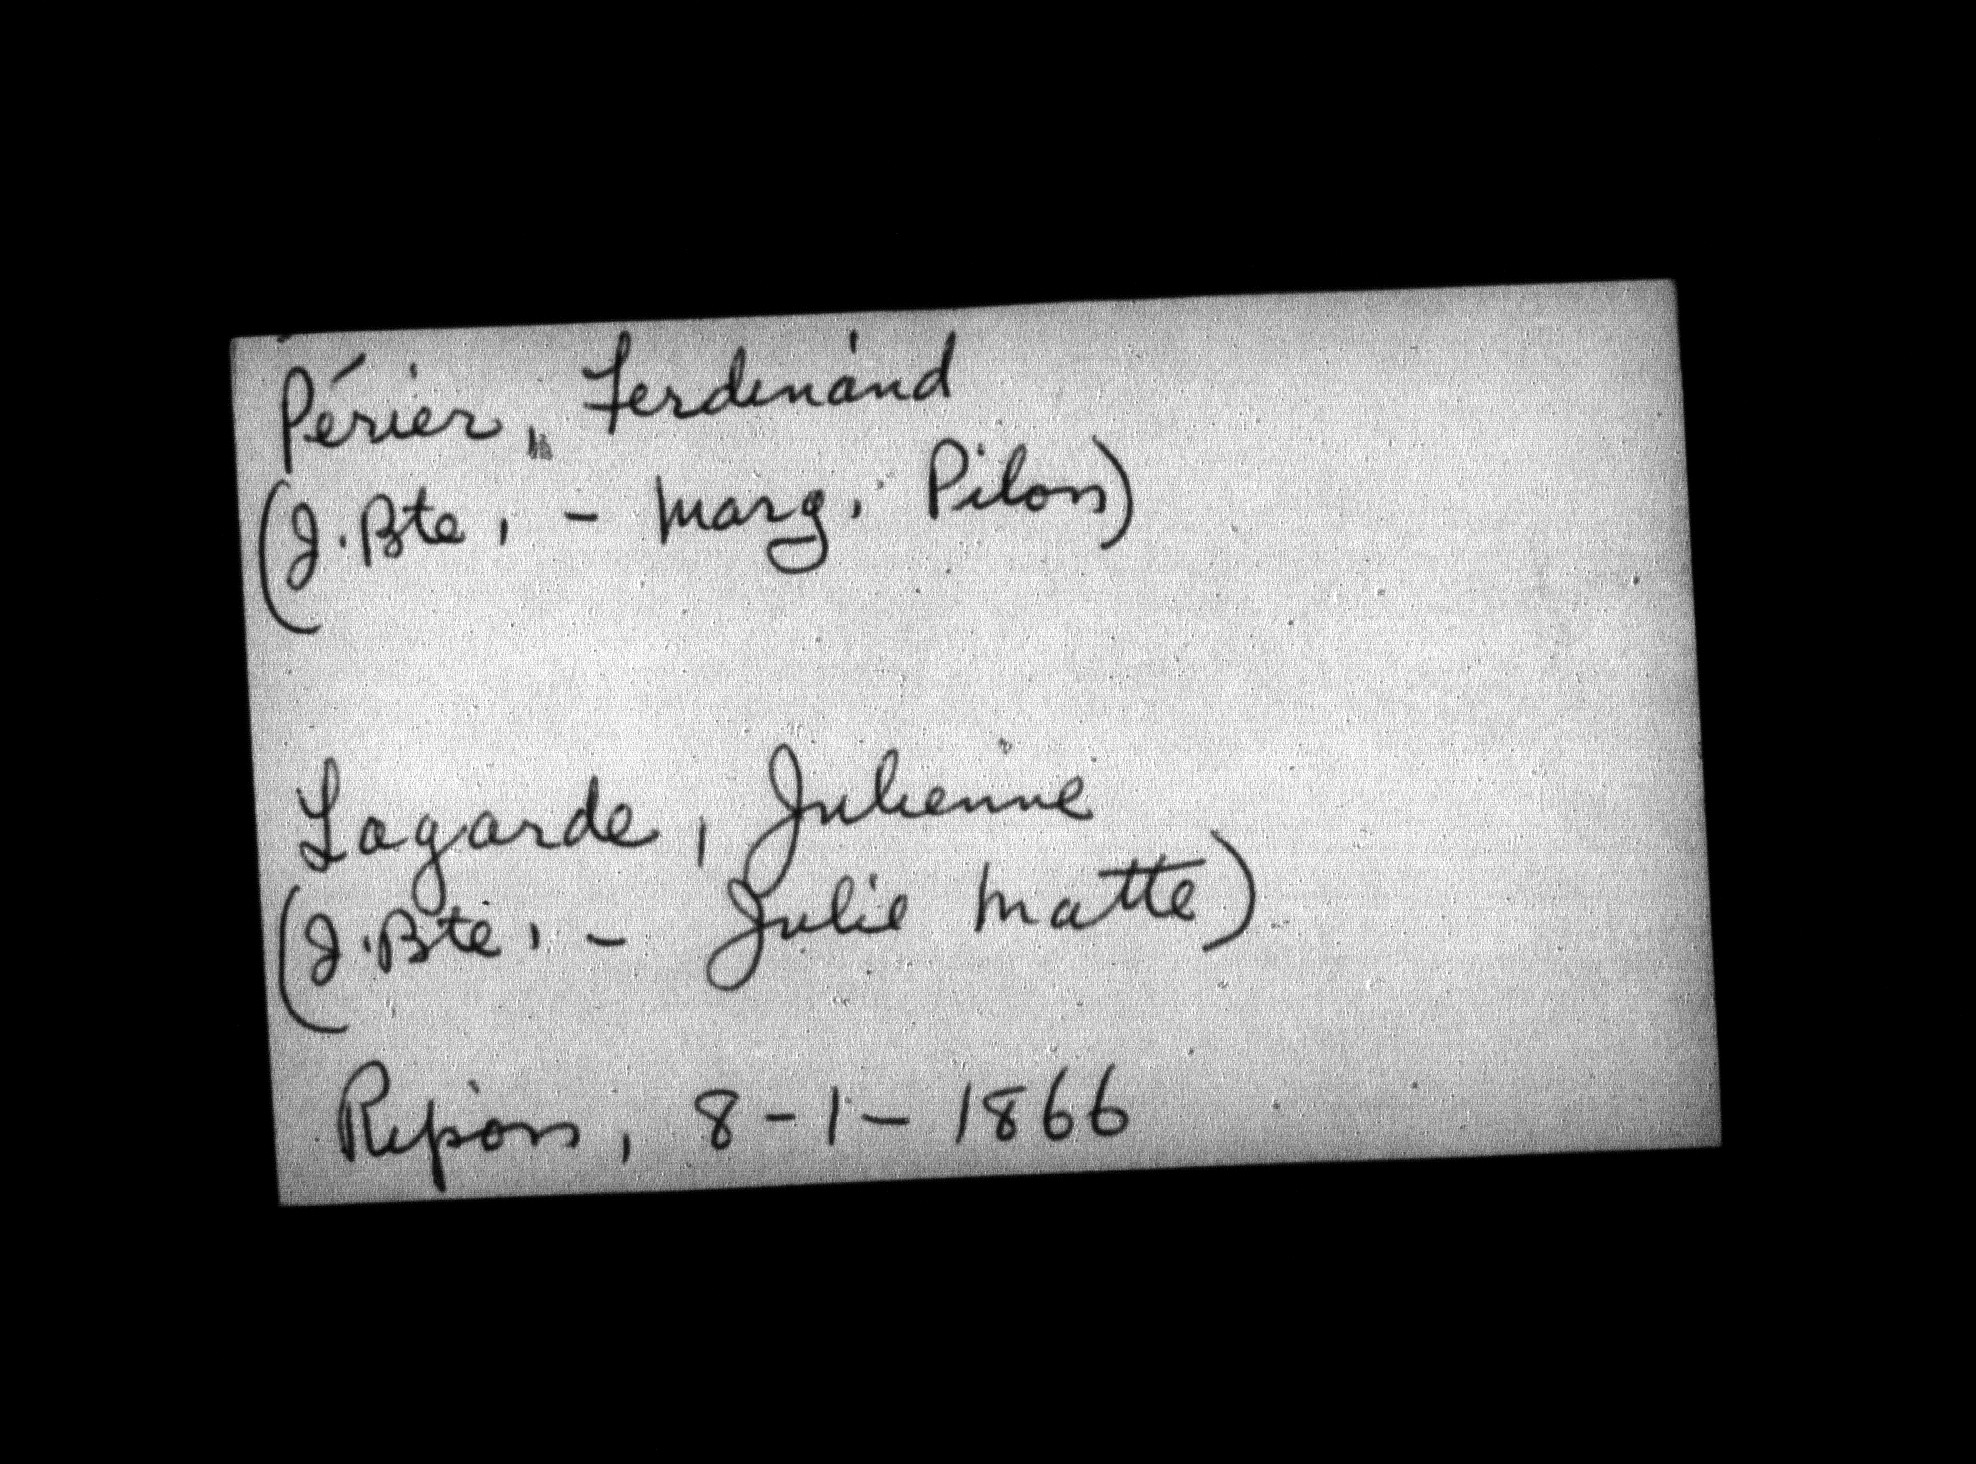 Périer, Ferdinand
(J. Bte, - Marg. Pilon)
Lagarde, Julienne
(J. Bte, - Julie Matte)
Ripon, 8-1-1866